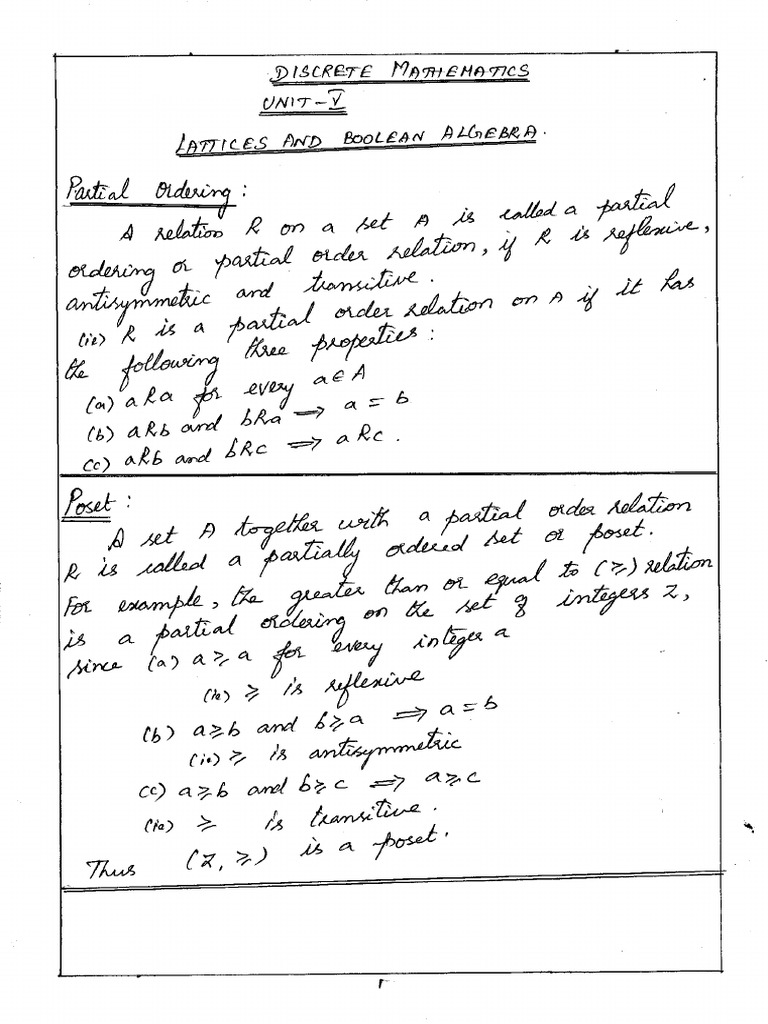 DISCRETE MATHEMATICS
UNIT-V
LATTICES AND BOOLEAN ALGEBRA.
Partial Ordering :
A relation R on a set A is called a partial
ordering or partial order relation, if R is reflexive,
antisymmetric and transitive.
(ie) R is a partial order relation on A if it has
the following three properties :
(a) aRa for every a∈A
(b) aRb and bRa → a = b
(c) aRb and bRc ⟹ aRc.
Poset :
A set A together with a partial order relation
R is called a partially ordered set or poset.
For example, the greater than or equal to (≥) relation
is a partial ordering on the set of integers Z,
since (a) a≥a for every integer a
(ie) ≥ is reflexive
(b) a≥b and b≥a ⟹ a = b
(ie) ≥ is antisymmetric
(c) a≥b and b≥c ⟹ a≥c
(ie) ≥ is transitive.
Thus (Z, ≥) is a poset.
1